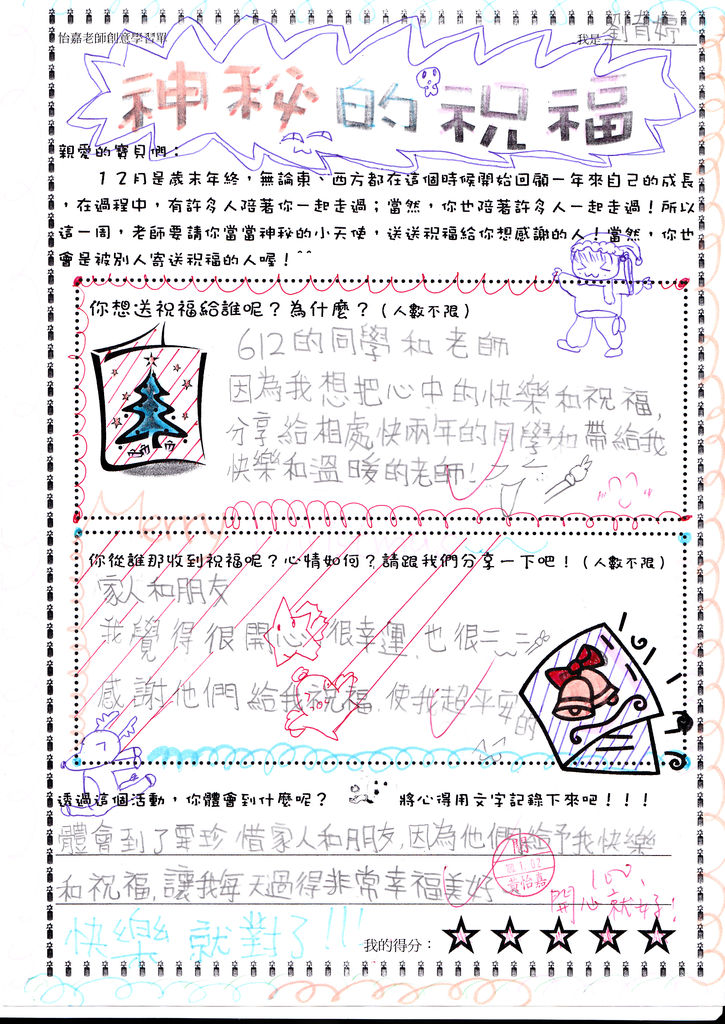 怡嘉老師創意學習單 我是劉育婷
神秘的祝福
親愛的寶貝們：
１２月是歲末年終，無論東、西方都在這個時候開始回顧一年來自己的成長
，在過程中，有許多人陪著你一起走過；當然，你也陪著許多人一起走過！所以
這一周，老師要請你當當神秘的小天使，送送祝福給你想感謝的人！當然，你也
會是被別人寄送祝福的人喔！^^
你想送祝福給誰呢？為什麼？（人數不限）
612的同學和老師
因為我想把心中的快樂和祝福,
分享給相處快兩年的同學和帶給我
快樂和溫暖的老師!
Merry
你從誰那收到祝福呢？心情如何？請跟我們分享一下吧！（人數不限）
家人和朋友
我覺得很開心很幸運,也很
感謝他們給我祝福,使我超平安的
透過這個活動，你體會到什麼呢？ 將心得用文字記錄下來吧！！！
體會到了要珍惜家人和朋友,因為他們給予我快樂
和祝福,讓我每天過得非常幸福美好
閱
黃怡嘉
100
開心就好!
快樂就對了!!!
我的得分：